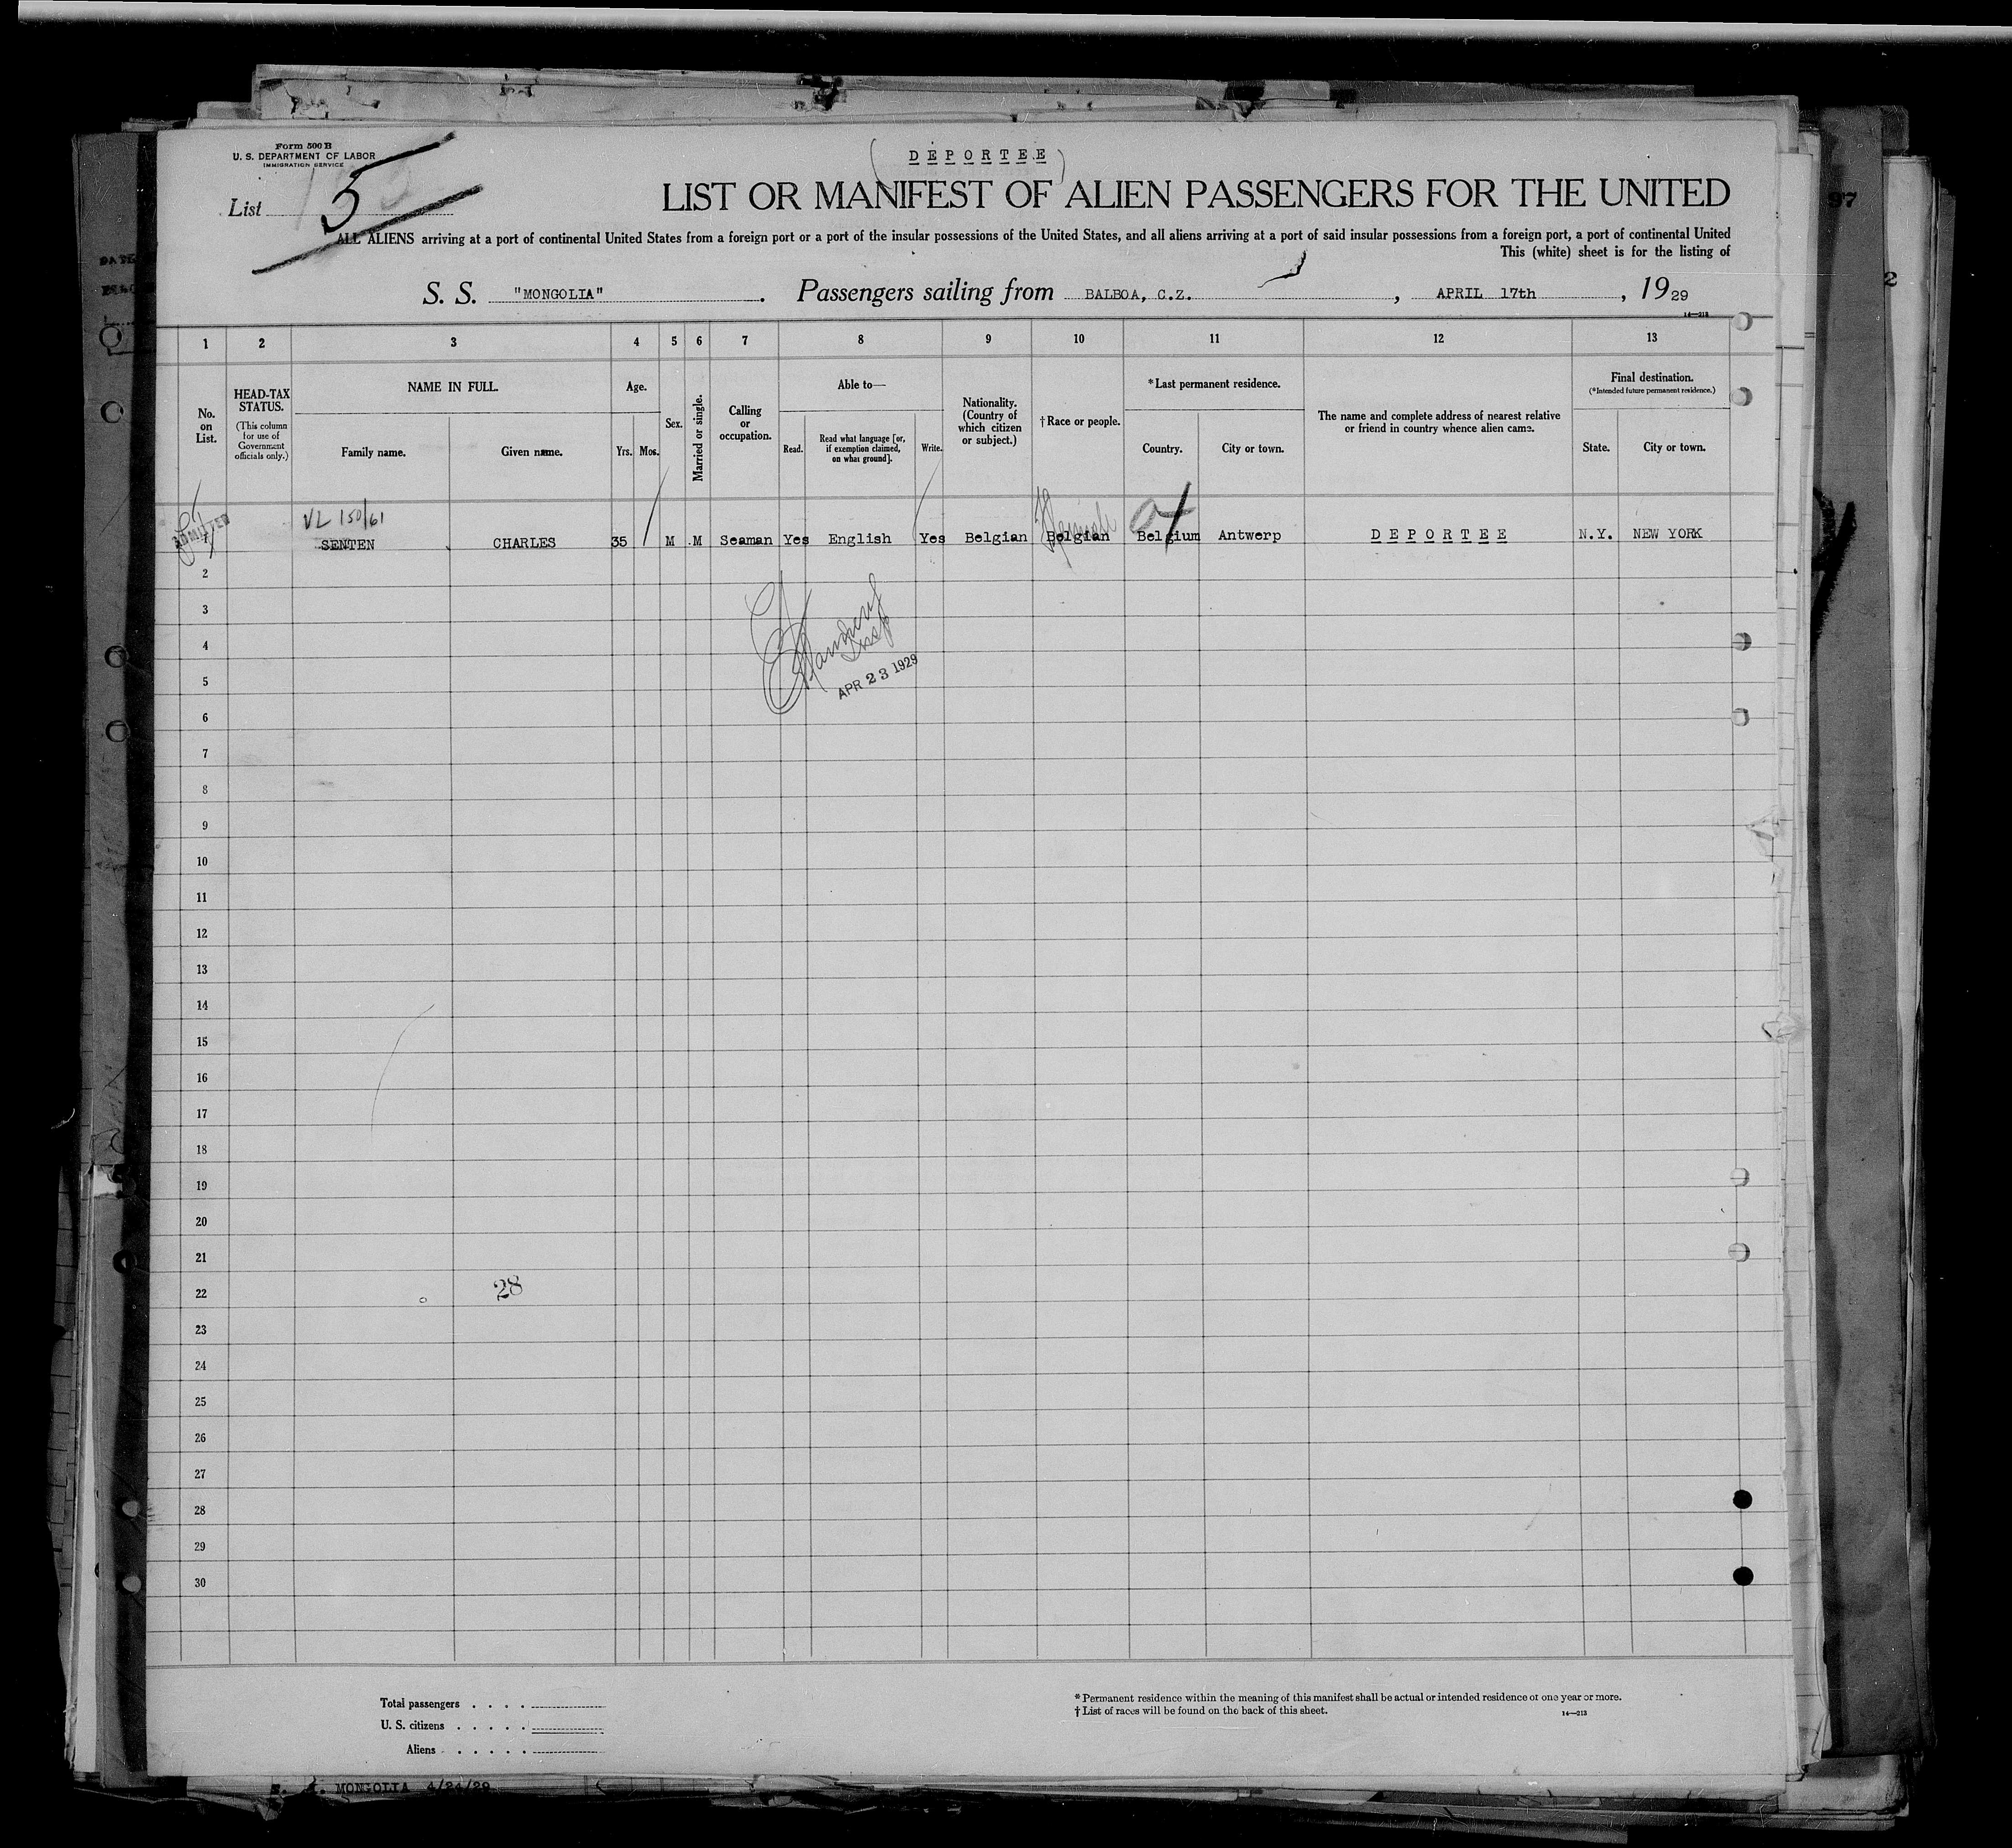 Form 500 B
U. S. DEPARTMENT OF LABOR
IMMIGRATION SERVICE
List 5
(DEPORTEE)
LIST OR MANIFEST OF ALIEN PASSENGERS FOR THE UNITED
ALL ALIENS arriving at a port of continental United States from a foreign port or a port of the insular possessions of the United States, and all aliens arriving at a port of said insular possessions from a foreign port, a port of continental United
This (white) sheet is for the listing of
S. S. "MONGOLIA". Passengers sailing from BALBOA, C.Z., APRIL 17th, 1929
14—213
1 2 3 4 5 6 7 8 9 10 11 12 13
No. on List.
HEAD-TAX STATUS.
(This column for use of Government officials only.)
NAME IN FULL.
Family name. Given name.
Age.
Yrs. Mos.
Sex.
Married or single.
Calling or occupation.
Able to—
Read. Read what language [or, if exemption claimed, on what ground]. Write.
Nationality. (Country of which citizen or subject.)
†Race or people.
*Last permanent residence.
Country. City or town.
The name and complete address of nearest relative or friend in country whence alien came.
Final destination.
(*Intended future permanent residence.)
State. City or town.
VL 150/61
ADMITTED
SENTEN CHARLES 35 M M Seaman Yes English Yes Belgian Belgian Belgium Antwerp DEPORTEE N.Y. NEW YORK
2
3
4
Insp
5
APR 23 1929
6
7
8
9
10
11
12
13
14
15
16
17
18
19
20
21
22 28
23
24
25
26
27
28
29
30
Total passengers
U. S. citizens
Aliens
*Permanent residence within the meaning of this manifest shall be actual or intended residence of one year or more.
†List of races will be found on the back of this sheet.
14—213
MONGOLIA 4/24/29
97
2